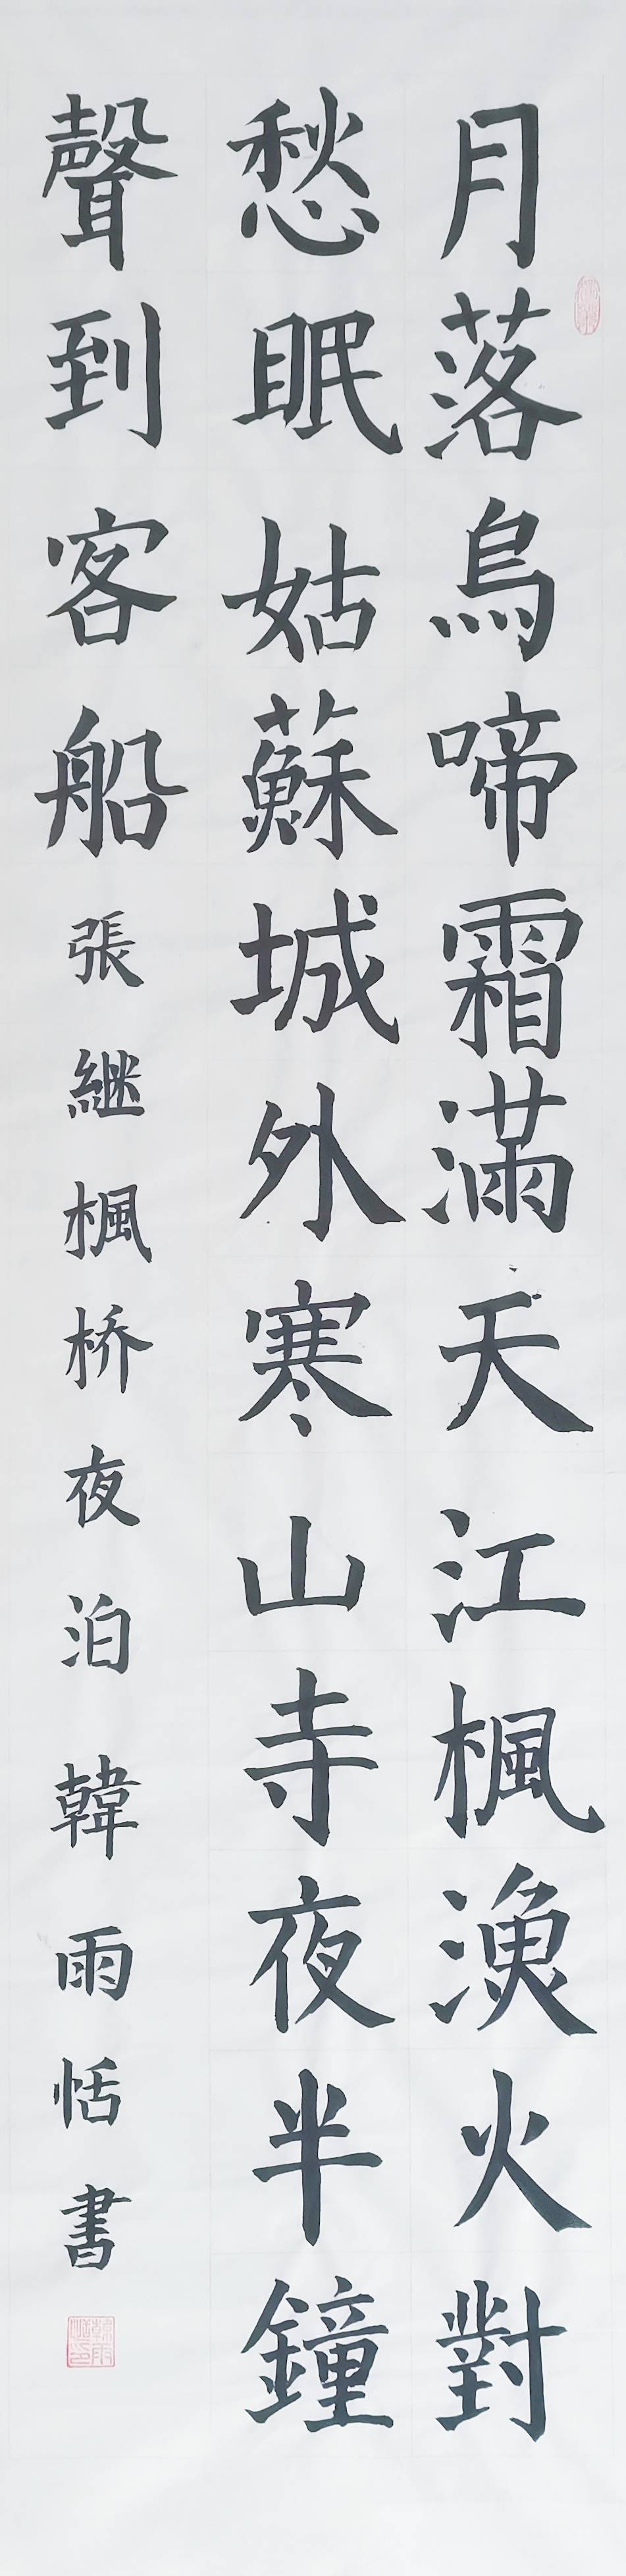 月落烏啼霜滿天江楓漁火對
愁眠姑蘇城外寒山寺夜半鐘
聲到客船張継楓桥夜泊韓雨恬書